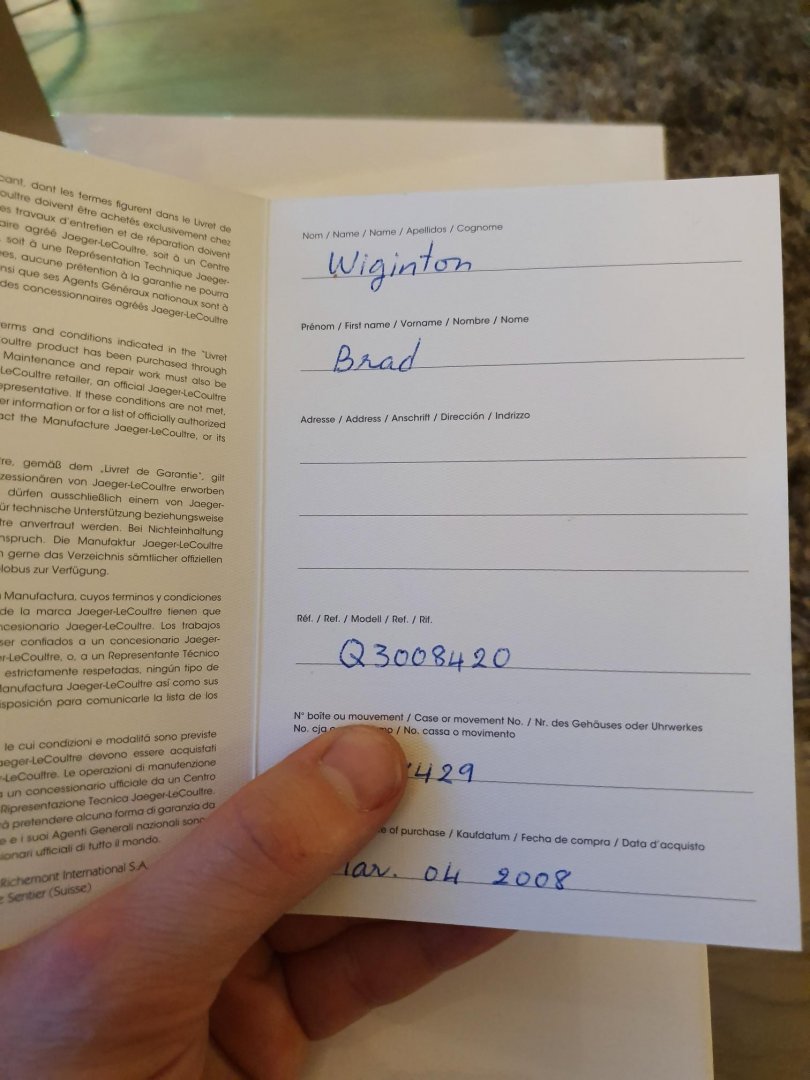 cant, dont les termes figurent dans le Livret de
oultre doivent être achetés exclusivement chez
es travaux d'entretien et de réparation doivent
aire agréé Jaeger-LeCoultre, soit à un Centre
soit à une Représentation Technique Jaeger-
es, aucune prétention à la garantie ne pourra
nsi que ses Agents Généraux nationaux sont à
des concessionnaires agréés Jaeger-LeCoultre
erms and conditions indicated in the "Livret
oultre product has been purchased through
Maintenance and repair work must also be
LeCoultre retailer, an official Jaeger-LeCoultre
epresentative. If these conditions are not met,
er information or for a list of officially authorized
act the Manufacture Jaeger-LeCoultre, or its
re, gemäß dem „Livret de Garantie", gilt
zessionären von Jaeger-LeCoultre erworben
dürfen ausschließlich einem von Jaeger-
ür technische Unterstützung beziehungsweise
tre anvertraut werden. Bei Nichteinhaltung
nspruch. Die Manufaktur Jaeger-LeCoultre
n gerne das Verzeichnis sämtlicher offiziellen
lobus zur Verfügung.
Manufactura, cuyos terminos y condiciones
de la marca Jaeger-LeCoultre tienen que
ncesionario Jaeger-LeCoultre. Los trabajos
ser confiados a un concesionario Jaeger-
er-LeCoultre, o, a un Representante Técnico
estrictamente respetadas, ningún tipo de
Manufactura Jaeger-LeCoultre así como sus
disposición para comunicarle la lista de los
le cui condizioni e modalitá sono previste
aeger-LeCoultre devono essere acquistati
-LeCoultre. Le operazioni di manutenzione
a un concessionario ufficiale da un Centro
Ripresentazione Tecnica Jaeger-LeCoultre.
rà pretendere alcuna forma di garanzia da
e e i suoi Agenti Generali nazionali sono
ionari ufficiali di tutto il mondo.
Richemont International S.A.
e Sentier (Suisse)
Nom / Name / Name / Apellidos / Cognome
Wiginton
Prénom / First name / Vorname / Nombre / Nome
Brad
Adresse / Address / Anschrift / Dirección / Indrizzo
Réf. / Ref. / Modell / Ref. / Rif.
Q3008420
N° boîte ou mouvement / Case or movement No. / Nr. des Gehäuses oder Uhrwerkes
No. cja o mo / No. cassa o movimento
429
e of purchase / Kaufdatum / Fecha de compra / Data d'acquisto
ar. 04 2008